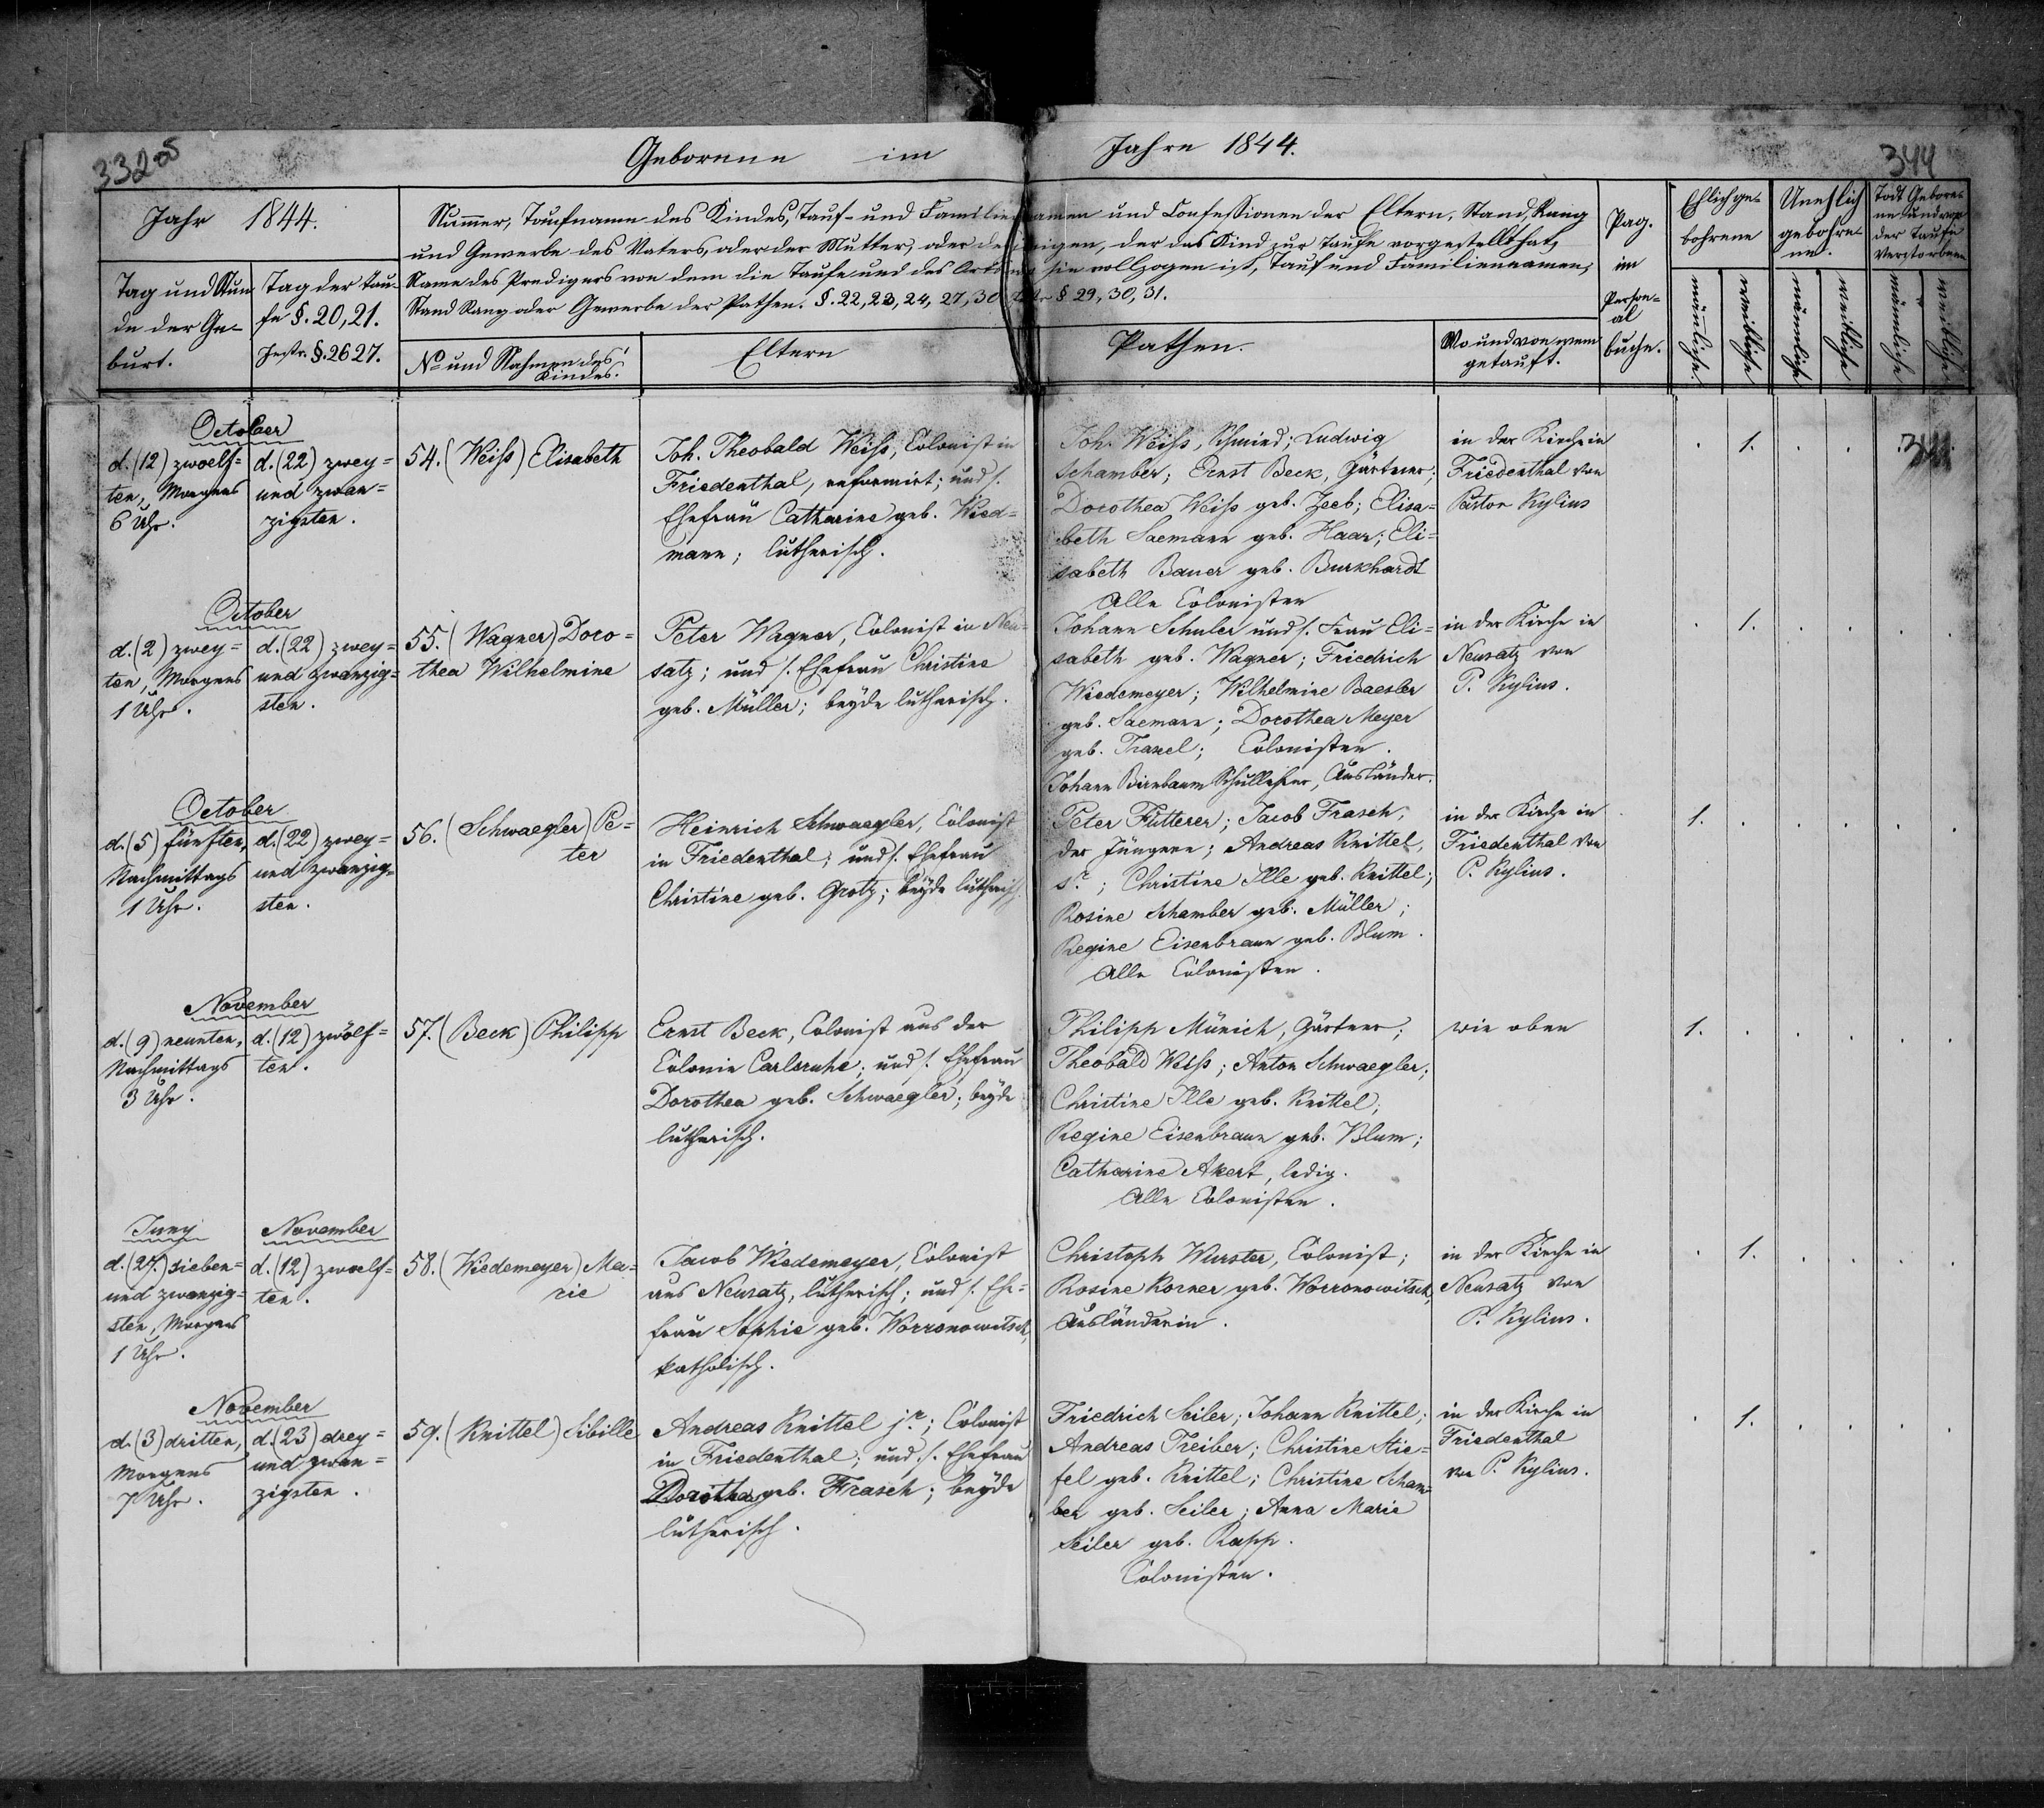 332 ob
Geborene im Jahre 1844.
344
Jahr 1844.
Tag und Stun-
de der Ge-
burt.
Tag der Tau-
fe §. 20, 21.
Instr. §. 26 27.
Numer, Taufname des Kindes, Tauf- und Familiennamen und Confessionen der Eltern, Stand, Rang
und Gewerbe des Vaters, oder der Mutter, oder desjenigen, der das Kind zur Taufe vorgestellt hat,
Name des Predigers von dem die Taufe und des Orts wo sie vollzogen ist, Tauf und Familiennamen,
Stand Rang oder Gewerbe der Pathen. §. 22, 23, 24, 27, 30 Instr. § 29, 30, 31.
No und Nahmen des
Kindes.
Eltern
Pathen.
Wo und von wem
getauft.
Pag.
im
Person-
al
buche.
Ehlich ge-
bohrene
Unehlich
gebohre-
ne.
Todt Gebore-
ne und vor
der Taufe
Verstorbene
männliche.
weibliche
männliche
weibliche
männliche
weibliche
October
d. (12) zwoelf=
ten, Morgens
6 Uhr.
d. (22) zwey=
und zwan=
zigsten.
54. (Weiss) Elisabeth
Joh. Theobald Weiss, Colonist in
Friedenthal, reformirt; und s.
Ehefrau Catharine geb. Wied=
mann; lutherisch.
Joh. Weiss, Schmied; Ludwig
Schamber; Ernst Beck, Gärtner;
Dorothea Weiss geb. Zeeb; Elisa=
beth Saemann geb. Haar; Eli=
sabeth Bauer geb. Burkhardt
Alle Colonisten
in der Kirche in
Friedenthal von
Pastor Kylius
1.
344
October
d. (2) zwey=
ten, Morgens
1 Uhr.
d. (22) zwey=
und zwanzig=
sten.
55. (Wagner) Doro=
thea Wilhelmine
Peter Wagner, Colonist in Neu=
satz; und s. Ehefrau Christine
geb. Müller; beyde lutherisch.
Johann Schuler und s. Frau Eli=
sabeth geb. Wagner; Friedrich
Wiedemeyer; Wilhelmine Baesler
geb. Saemann; Dorothea Meyer
geb. Traxel; Colonisten.
Johann Birnbaum Schullehrer, Ausländer.
in der Kirche in
Neusatz von
P. Kylius.
1.
October
d. (5) fünften,
Nachmittags
1 Uhr.
d. (22) zwey=
und zwanzig=
sten.
56. (Schwaegler) Pe=
ter
Heinrich Schwaegler, Colonist
in Friedenthal; und s. Ehefrau
Christine geb. Grotz; beyde lutherisch.
Peter Fütterer; Jacob Frasch,
der Jüngere; Andreas Knittel,
sr.; Christine Ille geb. Knittel;
Rosine Schamber geb. Müller;
Regine Eisenbraun geb. Blum.
Alle Colonisten.
in der Kirche in
Friedenthal von
P. Kylius.
1.
November
d. (9) neunten,
Nachmittags
3 Uhr.
d. (12) zwölf=
ten.
57. (Beck) Philipp
Ernst Beck, Colonist aus der
Colonie Carlsruhe; und s. Ehefrau
Dorothea geb. Schwaegler; beyde
lutherisch.
Philipp Münich, Gärtner;
Theobald Weiss; Anton Schwaegler;
Christine Ille geb. Knittel;
Regine Eisenbraun geb. Blum;
Catharine Akert, ledig.
Alle Colonisten.
wie oben
1.
Juny
d. (27) sieben=
und zwanzig=
sten, Morgens
1 Uhr.
November
d. (12) zwoelf=
ten.
58. (Wiedemeyer) Ma=
rie
Jacob Wiedemeyer, Colonist
aus Neusatz, lutherisch; und s. Ehe=
frau Sophie geb. Worronowitsch,
katholisch.
Christoph Wurster, Colonist;
Rosine Korner geb. Worronowitsch,
Ausländerin.
in der Kirche in
Neusatz von
P. Kylius.
1.
November
d. (3) dritten,
Morgens
7 Uhr.
d. (23) drey=
und zwan=
zigsten.
59. (Knittel) Sibille
Andreas Knittel jr.; Colonist
in Friedenthal; und s. Ehefrau
Dorothea geb. Frasch; beyde
lutherisch.
Friedrich Seiler; Johann Knittel;
Andreas Treiber; Christine Stie=
fel geb. Knittel; Christine Scham=
ber geb. Seiler; Anna Marie
Seiler geb. Rapp.
Colonisten.
in der Kirche in
Friedenthal
von P. Kylius.
1.